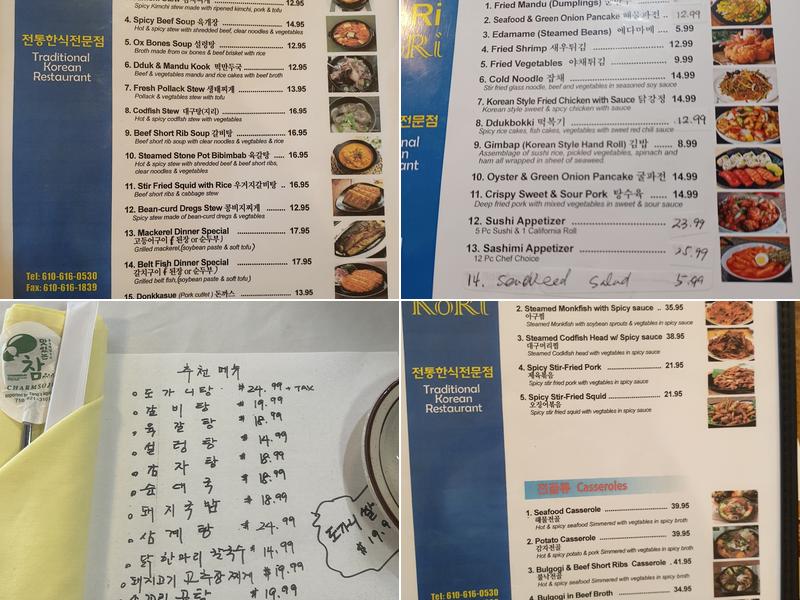 Spicy Kimchi stew made with ripened kimchi, pork & tofu
4. Spicy Beef Soup 육개장 14.95
Hot & spicy stew with shredded beef, clear noodles & vegetables
5. Ox Bones Soup 설렁탕 12.95
Broth made from ox bones & beef brisket with rice
6. Dduk & Mandu Kook 떡만두국 12.95
Beef & vegetables mandu and rice cakes with beef broth
7. Fresh Pollack Stew 생태찌개 13.95
Pollack & vegtables stew with tofu
8. Codfish Stew 대구탕(지리) 16.95
Hot & spicy codfish stew with vegetables
9. Beef Short Rib Soup 갈비탕 16.95
Beef short rib soup with clear noodles & vegetables & rice
10. Steamed Stone Pot Bibimbab 육갈탕 16.95
Hot & spicy stew with shredded beef & beef short ribs,
clear noodles & vegetables
11. Stir Fried Squid with Rice 우거지갈비탕 16.95
Beef short ribs & cabbage stew
12. Bean-curd Dregs Stew 콩비지찌개 12.95
Spicy stew made of bean-curd & vegtables
13. Mackerel Dinner Special 17.95
고등어구이 (된장 or 순두부)
Grilled mackerel,(soybean paste & soft tofu)
14. Belt Fish Dinner Special 17.95
갈치구이 (된장 or 순두부)
Grilled belt fish,(soybean paste & soft tofu)
15. Donkkasue (Pork cutlet) 돈까스 13.95
전통한식전문점
Traditional
Korean
Restaurant
Tel: 610-616-0530
Fax: 610-616-1839
Ri
Ri
전문점
nal
n
ant
1. Fried Mandu (Dumplings)
2. Seafood & Green Onion Pancake 해물파전 12.99
3. Edamame (Steamed Beans) 에다마메 5.99
4. Fried Shrimp 새우튀김 12.99
5. Fried Vegetables 야채튀김 9.99
6. Cold Noodle 잡채 14.99
Stir fried glass noodle, beef and vegtables in seasoned soy sauce
7. Korean Style Fried Chicken with Sauce 닭강정 14.99
Korean style sweet & spicy chicken
8. Ddukbokki 떡복기 12.99
Spicy rice cakes, fish cakes, vegtables with sweet red chili sauce
9. Gimbap (Korean Style Hand Roll) 김밥 8.99
Assemblage of sushi rice, pickled vegtables, spinach and
ham all wrapped in sheet of seaweed.
10. Oyster & Green Onion Pancake 굴파전 14.99
11. Crispy Sweet & Sour Pork 탕수육 14.99
Deep fried pork with mixed vegetables in sweet & sour sauce
12. Sushi Appetizer 23.99
5 Pc Sushi & 1 California Roll
13. Sashimi Appetizer 25.99
12 Pc Chef Choice
14. Seaweed Salad 5.99
맛있는
참
CHARMSO
추천 메뉴
도가니탕 $24.99 + TAX
갈비탕 $19.99
육갈탕 $18.99
설렁탕 $14.99
감자탕 $18.99
순대국 $18.99
돼지국밥 $18.99
삼계탕 $24.99
닭 한마리 칼국수 $14.99
돼지고기 고추장찌개 $19.99
꼬리곰탕 $19.99
KoRi
전통한식전문점
Traditional
Korean
Restaurant
Tel: 610-616-0530
2. Steamed Monkfish with Spicy sauce 35.95
아구찜
Steamed Monkfish with soybean sprouts & vegtables in spicy sauce
3. Steamed Codfish Head w/ Spicy sauce 38.95
대구머리찜
Steamed Codfish head with vegtables in spicy sauce
4. Spicy Stir-Fried Pork 21.95
제육볶음
Spicy stir fried pork with vegtables in spicy sauce
5. Spicy Stir-Fried Squid 21.95
오징어볶음
Spicy stir fried squid with vegtables in spicy sauce
전골류 Casseroles
1. Seafood Casserole 39.95
해물전골
Hot & spicy seafood Simmered with vegtables in spicy broth
2. Potato Casserole 39.95
감자전골
Hot & spicy potato & pork Simmered with vegtables in spicy broth
3. Bulgogi & Beef Short Ribs Casserole 41.95
불낙전골
Hot & spicy seafood Simmered with vegtables in spicy broth
4. Bulgogi in Beef Broth 34.95